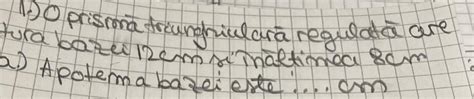 1) O prismă triunghiulară regulată are
tura bazei 12cm și înălțimea 8cm
a) Apotema bazei este .... cm